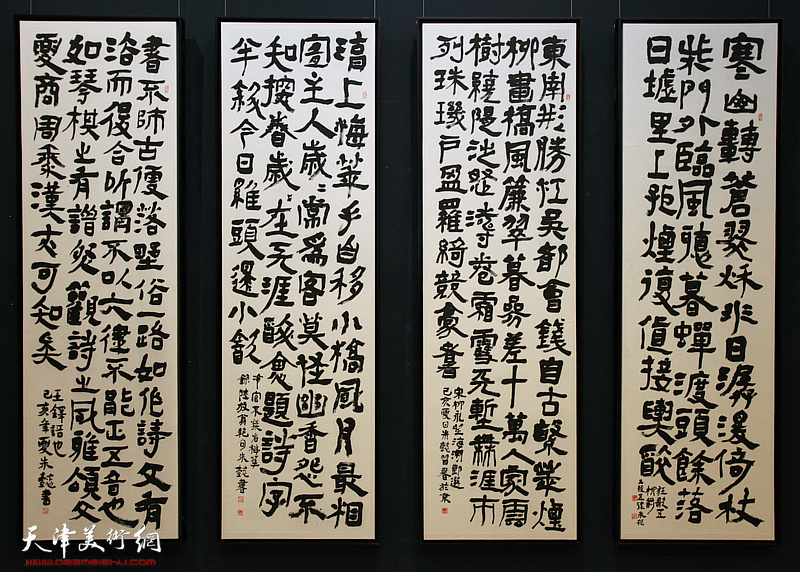 寒山轉蒼翠秋水日潺湲倚杖
柴門外臨風聽暮蟬渡頭餘落
日墟里上孤煙復值接輿醉
東南形勝江吳都會錢自古繁華煙
柳畫橋風簾翠暮參差十萬人家雲
樹繞堤沙怒濤卷霜雪天塹無涯市
列珠璣戶盈羅綺競豪奢
宋柳永望海潮節選
清上梅花手自移小橋風月最相
宜主人歲歲常為客莫怪幽香怨不
知擬春歲在天涯醉題詩字
半縣今日雖頭還小飲
書不師古便落野俗一路如作詩文有
法而後合所謂不以六律不能正五音也
如琴棋之有譜然觀詩之風雅頌文
夏商周秦漢亦可知矣
王鐸語也
己亥年夏朱懿書
天津美術網